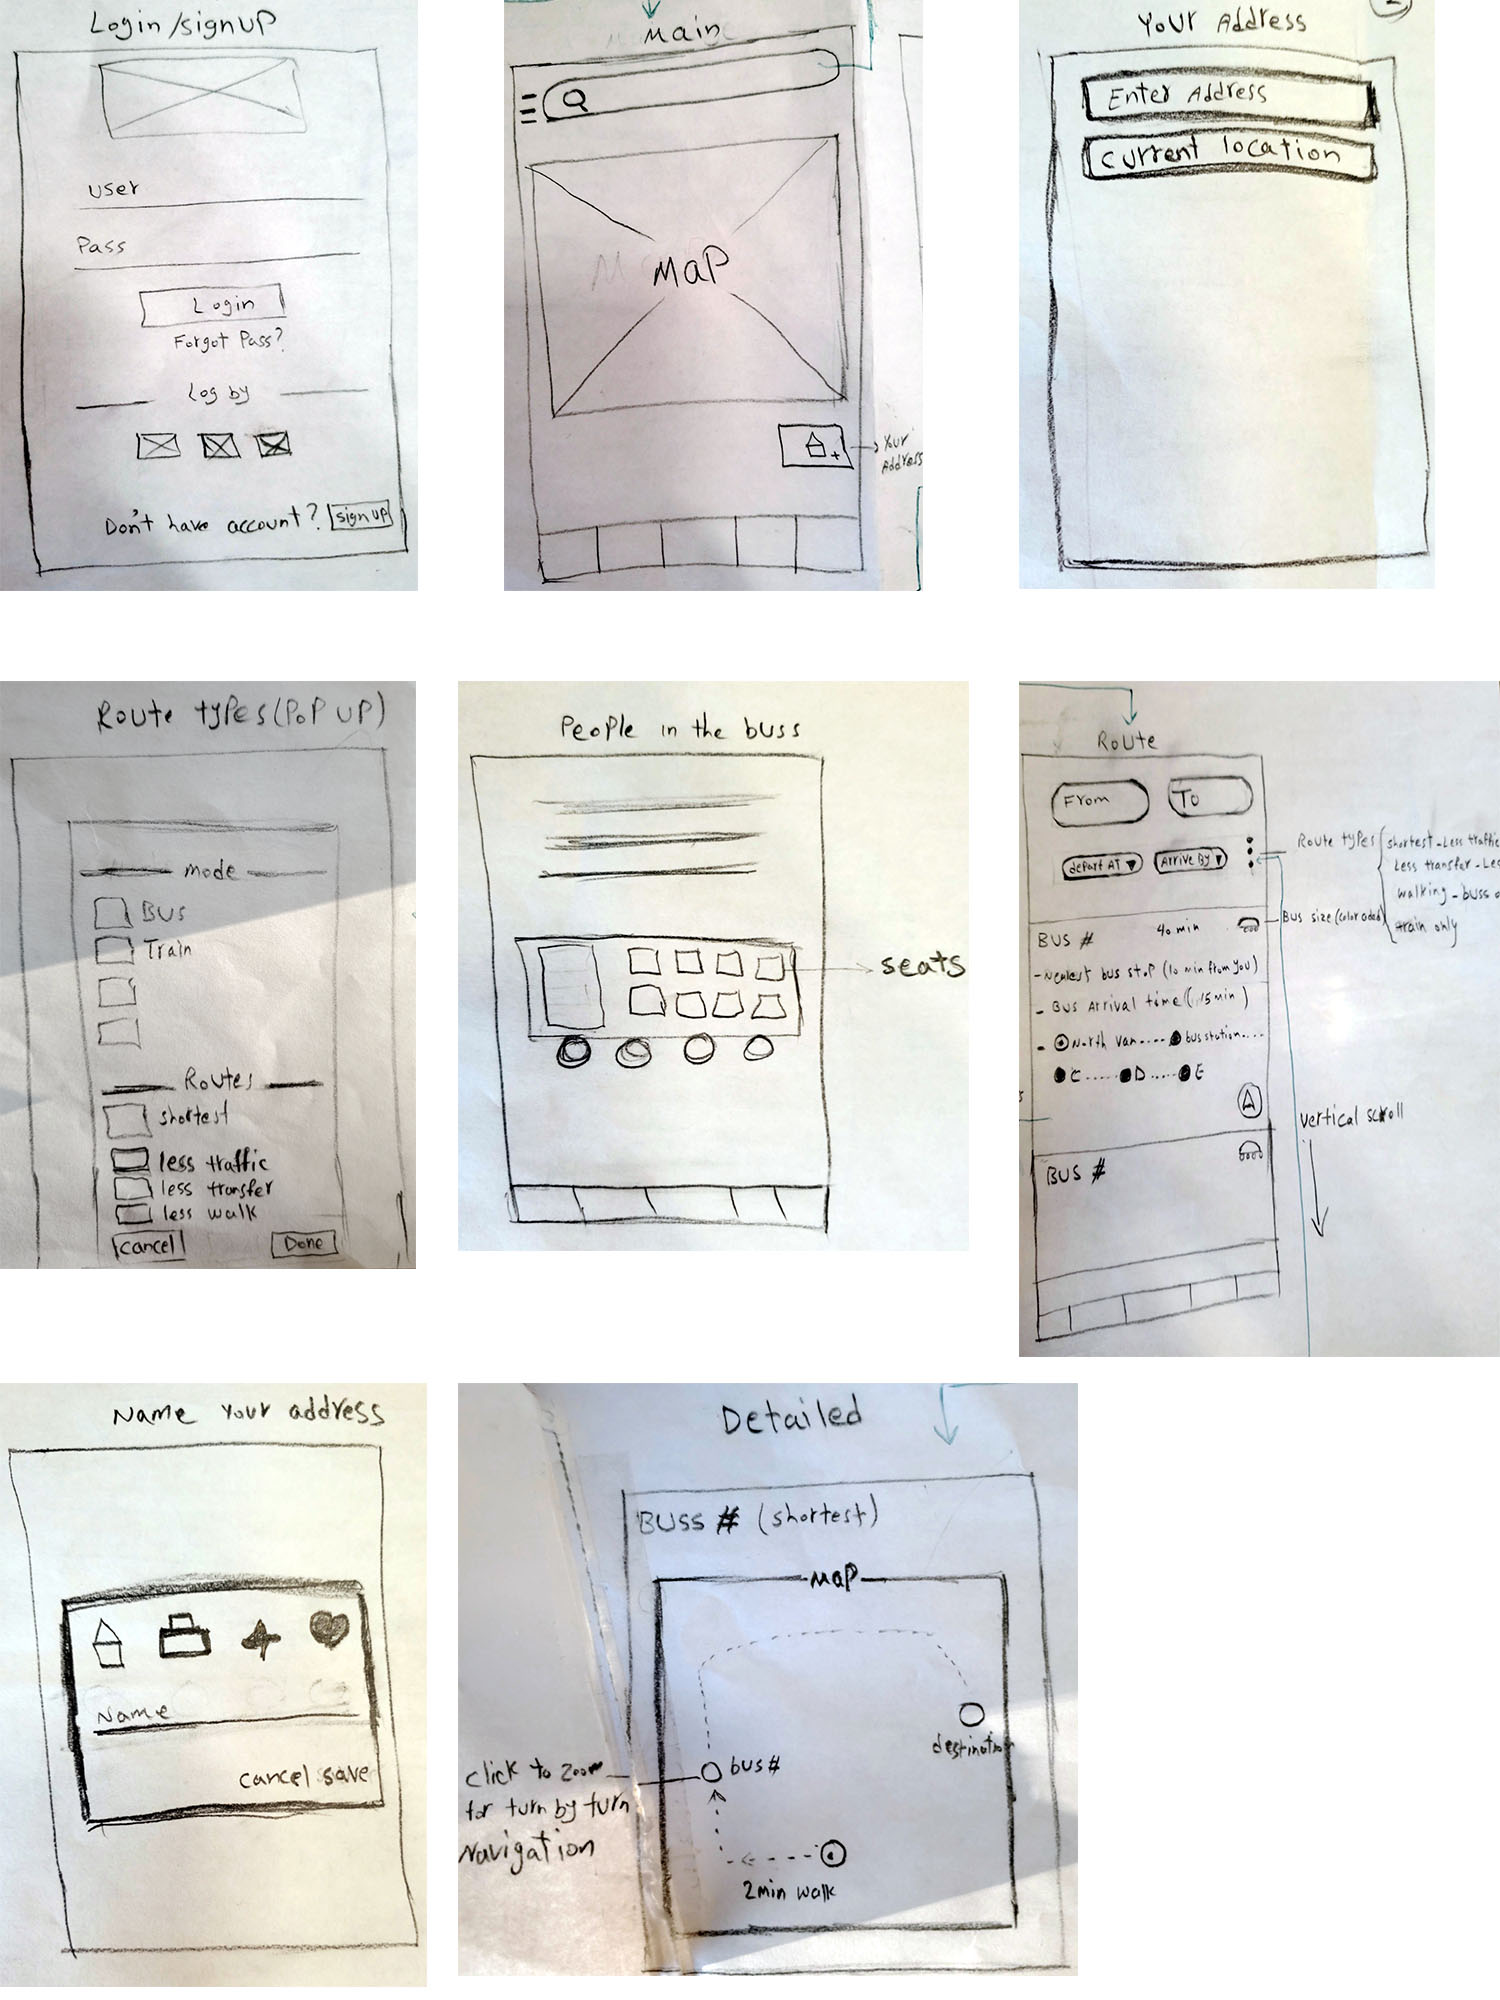 Login/signup
user
Pass
Login
Forgot Pass?
Log by
Don't have account? sign up
Main
MaP
Your
Address
Your Address
Enter Address
Current location
Route types (PoP UP)
mode
BUS
Train
Routes
shortest
less traffic
less transfer
less walk
cancel
Done
People in the buss
seats
Route
From
To
depart AT
Arrive By
Route types
shortest - Less traffic
Less transfer - Les
walking - buss o
train only
BUS #
40 min
Bus size (color coded)
- Nearest bus stop (10 min from you)
- Bus Arrival time (15min)
- North Van.... bus station....
C ...... D ..... E
vertical scroll
BUS #
Name Your address
Name
cancel save
Detailed
BUSS # (shortest)
MaP
destination
bus #
click to zoom
for turn by turn
Navigation
2min walk